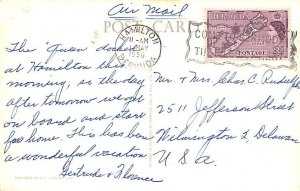 Air Mail
POST CARD
HAMILTON
BERMUDA
BERMUDA
The "Queen" docked
at Hamilton this
morning, as the day
after tomorrow we get
on board and start
for home. This has been
a wonderful vacation
Gertrude & Florence
Mr & Mrs Chas. C. Rudolph
2511 Jefferson Street
Wilmington, Delaware
U.S.A.